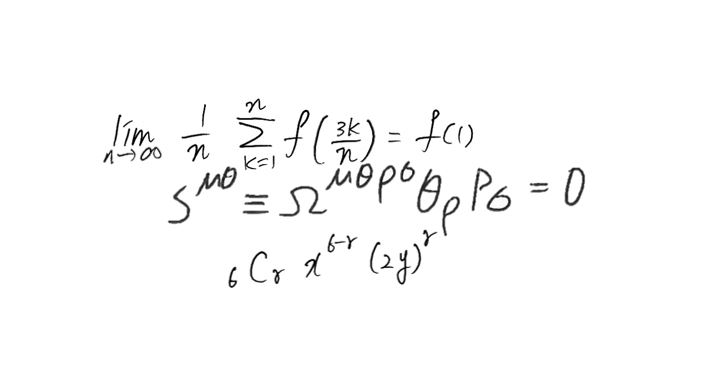 \lim_{n \to \infty} \frac{1}{n} \sum_{k=1}^{n} f\left(\frac{3k}{n}\right) = f(1)
S^{\mu\theta} \equiv \Omega^{\mu\theta\rho\sigma} \theta_{\rho} P_{\sigma} = 0
{}_{6}C_{r} x^{6-r} (2y)^{r}